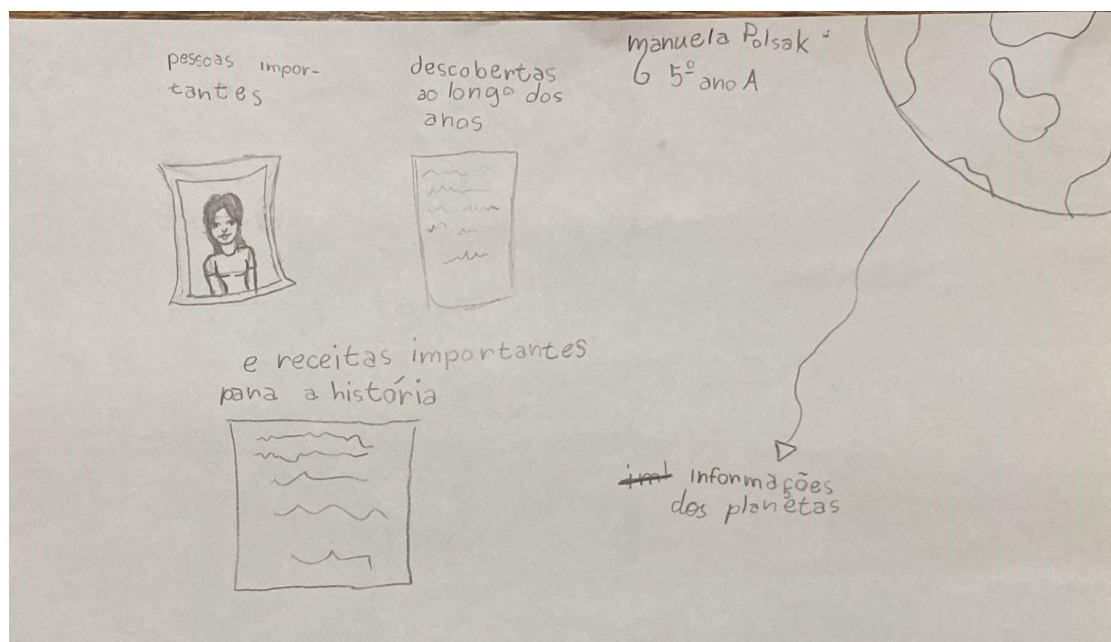 pessoas impor-
tantes
descobertas
ao longo dos
anos
manuela Polsak
5º ano A
e receitas importantes
para a história
informações
dos planetas